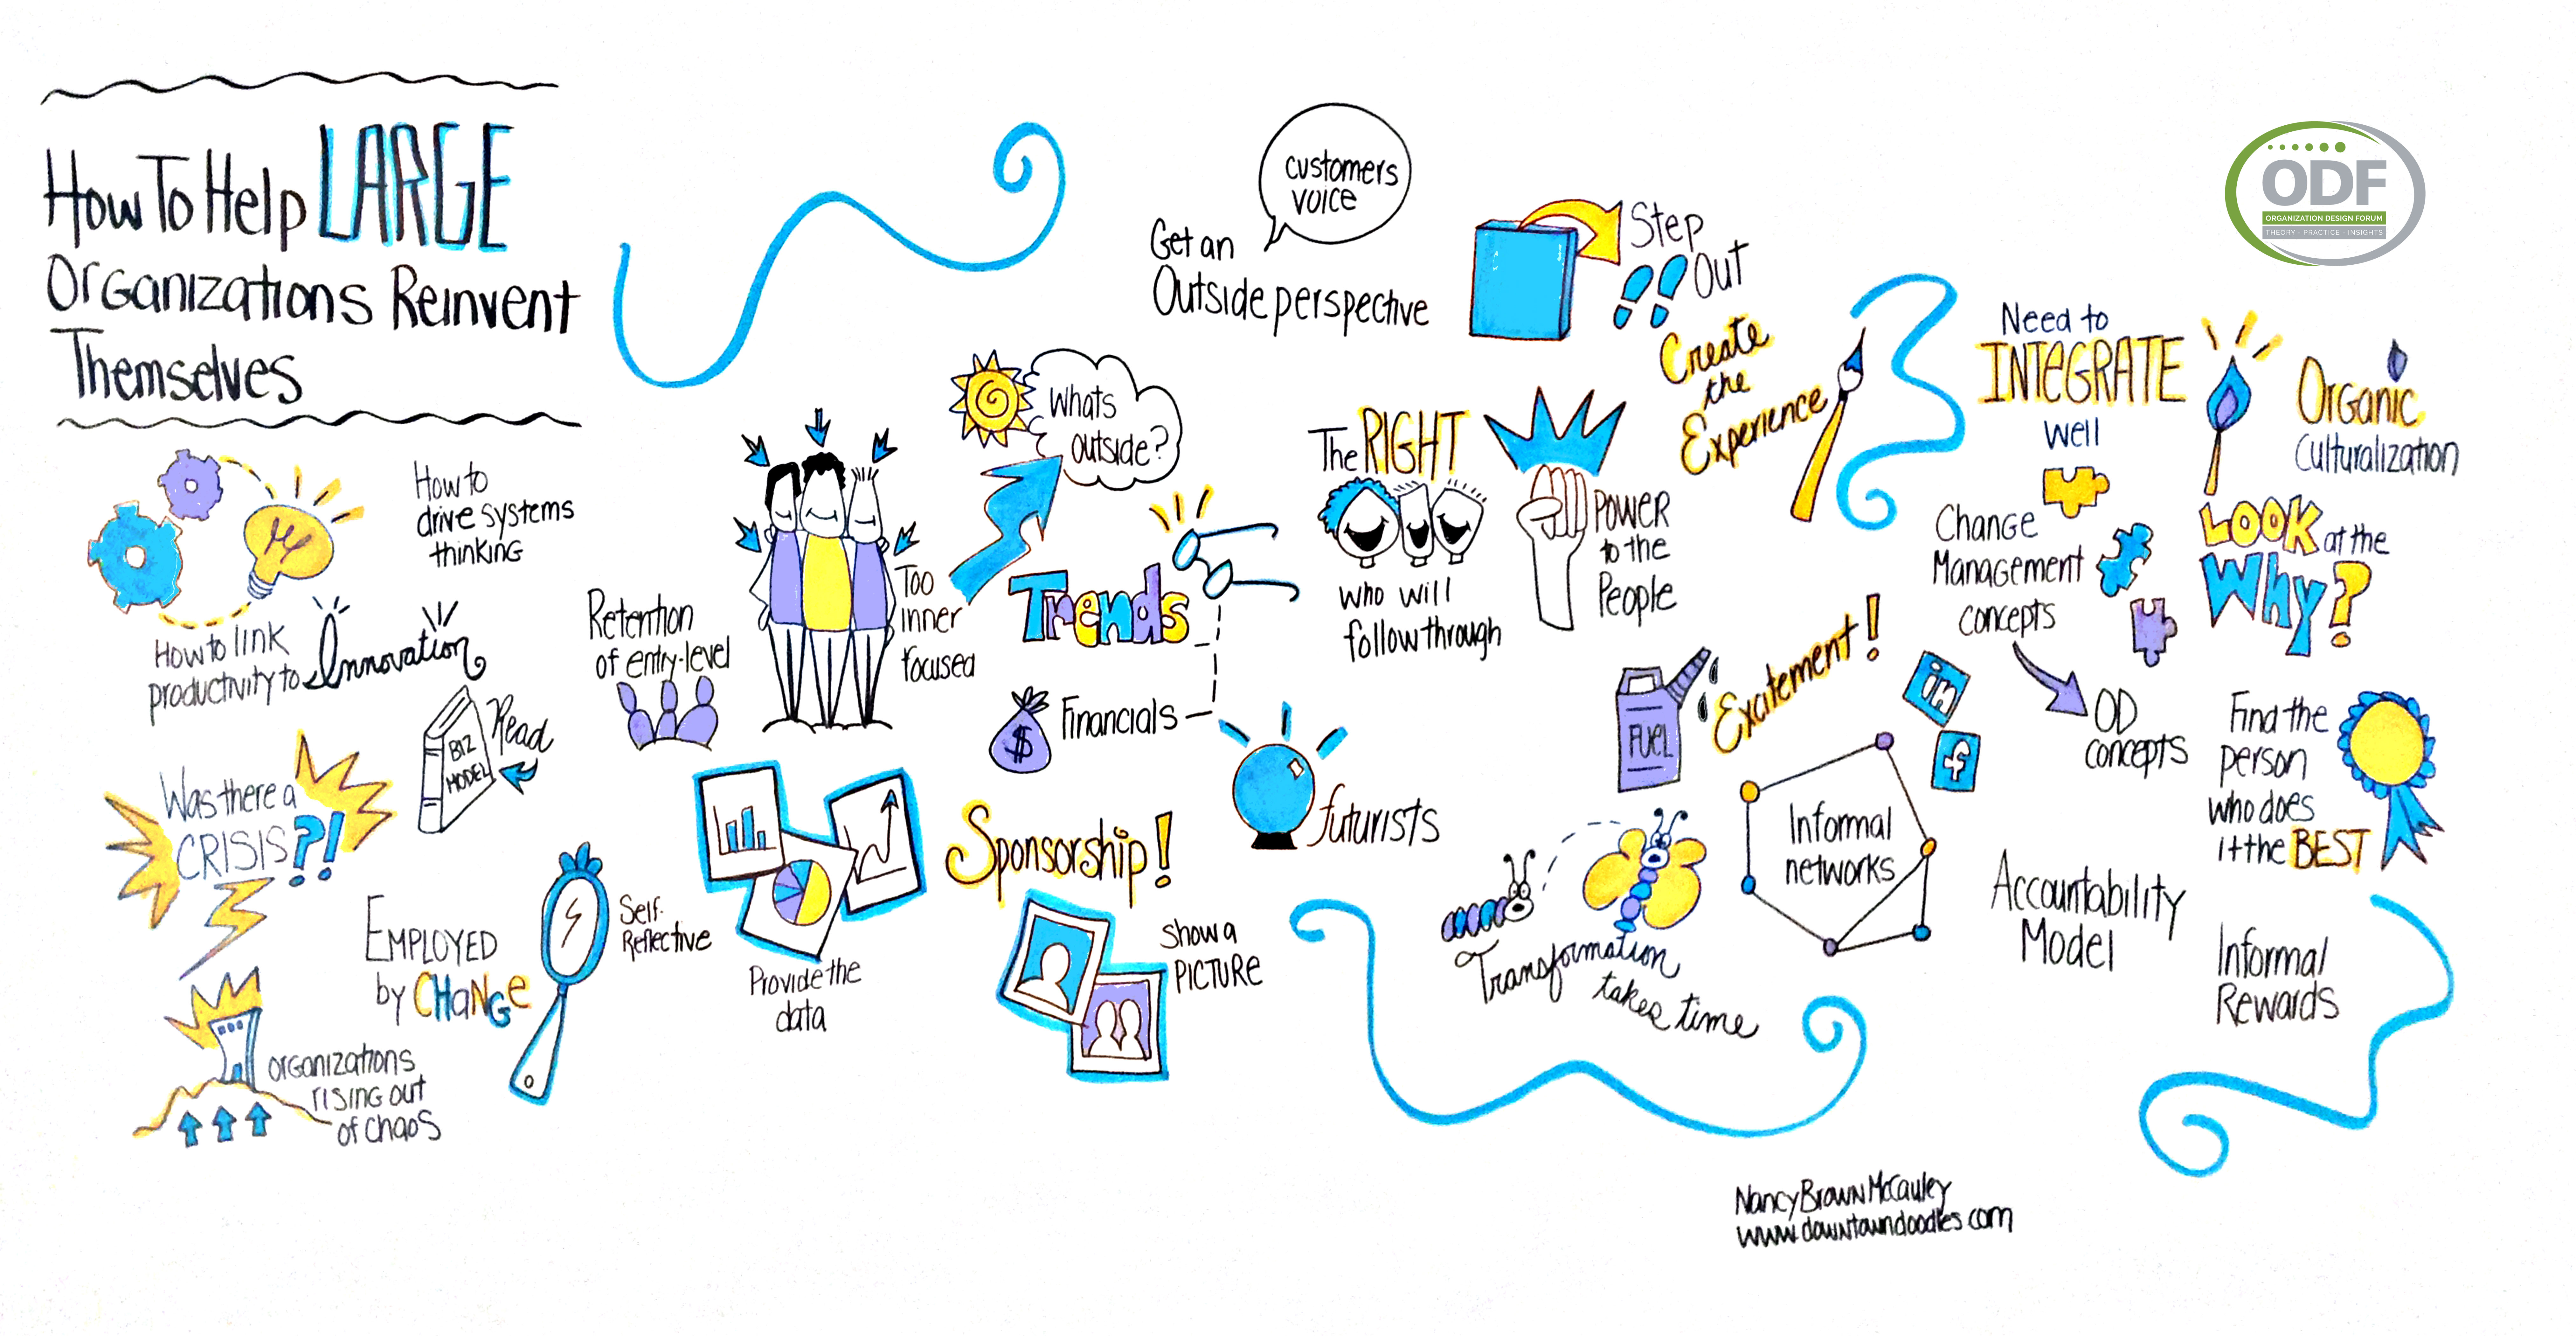 How To Help LARGE
Organizations Reinvent
Themselves
How to
drive systems
thinking
How to link
productivity to Innovation
BIZ
MODEL
Read
Was there a
CRISIS?!
EMPLOYED
by CHaNGe
Self-
Reflective
organizations
rising out
of chaos
Retention
of entry-level
Too
inner
focused
Whats
outside?
Trends
$
Financials
futurists
Provide the
data
Sponsorship!
Show a
PICTURE
customers
voice
Get an
Outside perspective
Step
Out
Create
the
Experience
The RIGHT
who will
follow through
POWER
to the
People
FUEL
Excitement!
in
f
Informal
networks
Transformation
takes time
Need to
INTEGRATE
well
Change
Management
concepts
OD
concepts
Accountability
Model
ODF
ORGANIZATION DESIGN FORUM
THEORY - PRACTICE - INSIGHTS
Organic
Culturalization
LOOK at the
Why?
Find the
person
who does
it the BEST
Informal
Rewards
Nancy Brown McCauley
www.downtowndoodles.com